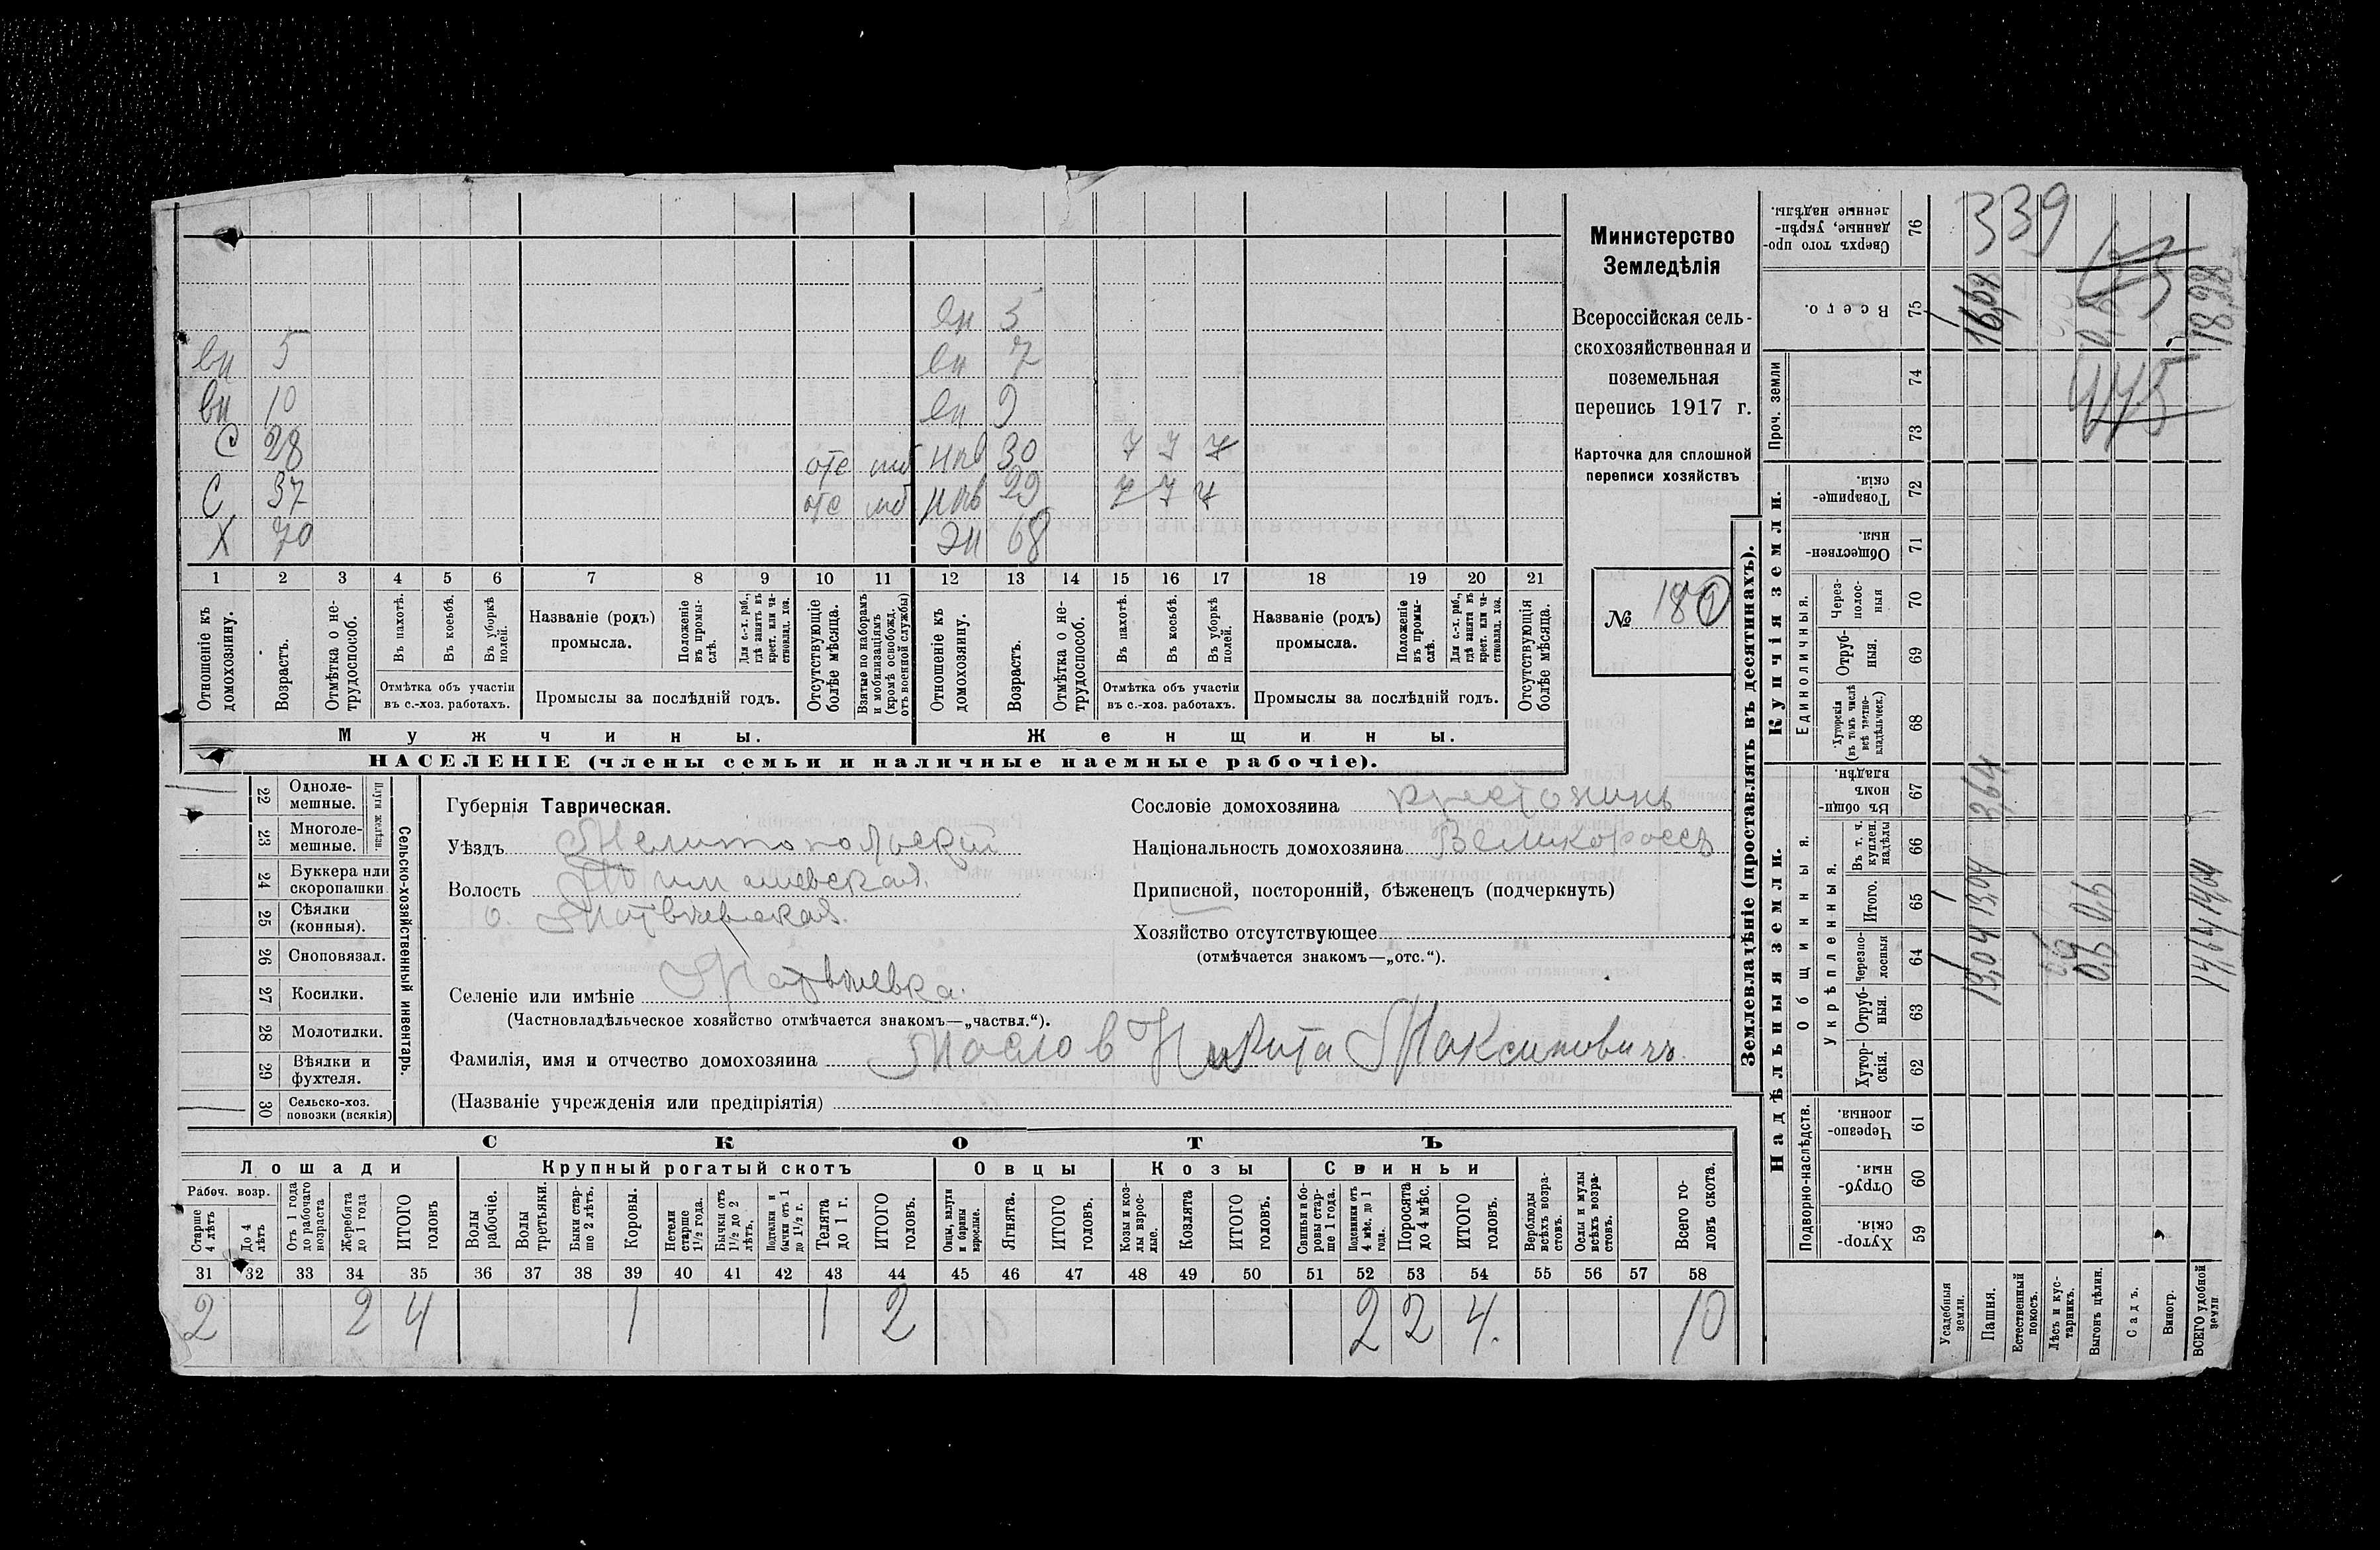 Министерство
Земледѣлія
Всероссійская сель-
скохозяйственная и
поземельная
перепись 1917 г.
Карточка для сплошной
переписи хозяйствъ
№ 180
вн 3
вн 5 вн 7
вн 10 вн 9
С 28 отс моб нев 30 7 7 7
С 37 отс моб нев 29 7 7 7
Х 70 68
1 2 3 4 5 6 7 8 9 10 11 12 13 14 15 16 17 18 19 20 21
Отношеніе къ домохозяину.
Возрастъ.
Отмѣтка о не-трудоспособ.
Въ пахотѣ.
Въ косьбѣ.
Въ уборкѣ полей.
Отмѣтка объ участіи
въ с.-хоз. работахъ.
Названіе (родъ)
промысла.
Положеніе въ промы-слѣ.
Для с.-х. раб., гдѣ занятъ въ крест. или ча-стновлад. хоз.
Промыслы за послѣдній годъ.
Отсутствующіе болѣе мѣсяца.
Взятые по наборамъ и мобилизаціямъ (кромѣ освобожд. отъ военной службы)
Отношеніе къ домохозяину.
Возрастъ.
Отмѣтка о не-трудоспособ.
Въ пахотѣ.
Въ косьбѣ.
Въ уборкѣ полей.
Отмѣтка объ участіи
въ с.-хоз. работахъ.
Названіе (родъ)
промысла.
Положеніе въ промы-слѣ.
Для с.-х. раб., гдѣ занята въ крест. или ча-стновлад. хоз.
Промыслы за послѣдній годъ.
Отсутствующія болѣе мѣсяца.
Мужчины. Женщины.
НАСЕЛЕНІЕ (члены семьи и наличные наемные рабочіе).
Сельско-хозяйственный инвентарь.
Плуги желѣзн.
22 Одноле-мешные.
23 Многоле-мешные.
24 Буккера или скоропашки
25 Сѣялки (конныя).
26 Сноповязал.
27 Косилки.
28 Молотилки.
29 Вѣялки и фухтеля.
30 Сельско-хоз. повозки (всякія)
Губернія Таврическая.
Уѣздъ Мелитопольскій
Волость Тимашевская
о. Матвѣевская.
Селеніе или имѣніе Матвѣевка.
(Частновладѣльческое хозяйство отмѣчается знакомъ—„частвл.“).
Фамилія, имя и отчество домохозяина Маслов Никита Максимовичъ.
(Названіе учрежденія или предпріятія)
Сословіе домохозяина крестьянинъ
Національность домохозяина Великороссъ
Приписной, посторонній, бѣженецъ (подчеркнуть)
Хозяйство отсутствующее
(отмѣчается знакомъ—„отс.“).
СКОТЪ
Лошади Крупный рогатый скотъ Овцы Козы Свиньи
Рабоч. возр.
Старше 4 лѣтъ
До 4 лѣтъ
Отъ 1 года до рабочаго возраста
Жеребята до 1 года
ИТОГО головъ
Волы рабочіе.
Волы третьяки.
Быки стар-ше 2 лѣтъ.
Коровы.
Нетели старше 1½ года.
Бычки отъ 1½ до 2 лѣтъ.
Подтелки и бычки отъ 1 до 1½ г.
Телята до 1 г.
ИТОГО головъ.
Овцы, валухи и бараны взрослые.
Ягнята.
ИТОГО головъ.
Козы и коз-лы взрос-лые.
Козлята
ИТОГО головъ.
Свиньи и бо-ровы стар-ше 1 года.
Подсвинки отъ 4 мѣс. до 1 года.
Поросята до 4 мѣс.
ИТОГО головъ.
Верблюды всѣхъ возра-стовъ.
Ослы и мулы всѣхъ возра-стовъ.
Всего го-ловъ скота.
31 32 33 34 35 36 37 38 39 40 41 42 43 44 45 46 47 48 49 50 51 52 53 54 55 56 57 58
2 2 4 1 1 2 2 2 4. 10
Землевладѣніе (проставлять въ десятинахъ).
Надѣльныя земли. Купчія земли. Проч. земли
Подворно-наслѣдств.
Общинныя.
Укрѣпленныя.
Единоличныя.
Хутор-скія. 59
Отруб-ныя. 60
Черезпо-лосныя. 61
Хутор-скія. 62
Отруб-ныя. 63
Черезпо-лосныя 64
Итого. 65
Въ т. ч. куплен. надѣлы 66
Въ общин-номъ владѣн. 67
Хуторскія (въ томъ числѣ всѣ частно-владѣльческ.) 68
Отруб-ныя. 69
Через-полос-ныя 70
Обществен-ныя. 71
Товарище-скія. 72
73
74
Всего. 75
Сверхъ того про-данные, укрѣп-ленные надѣлы. 76
Усадебныя земли.
Пашня.
Естественный покосъ.
Лѣсъ и кус-тарникъ.
Выгонъ цѣлин.
Садъ.
Виногр.
ВСЕГО удобной земли
339
16,68
13,04 13,04 3,64
0,6 0,6
445
14,64 14,04
18,98